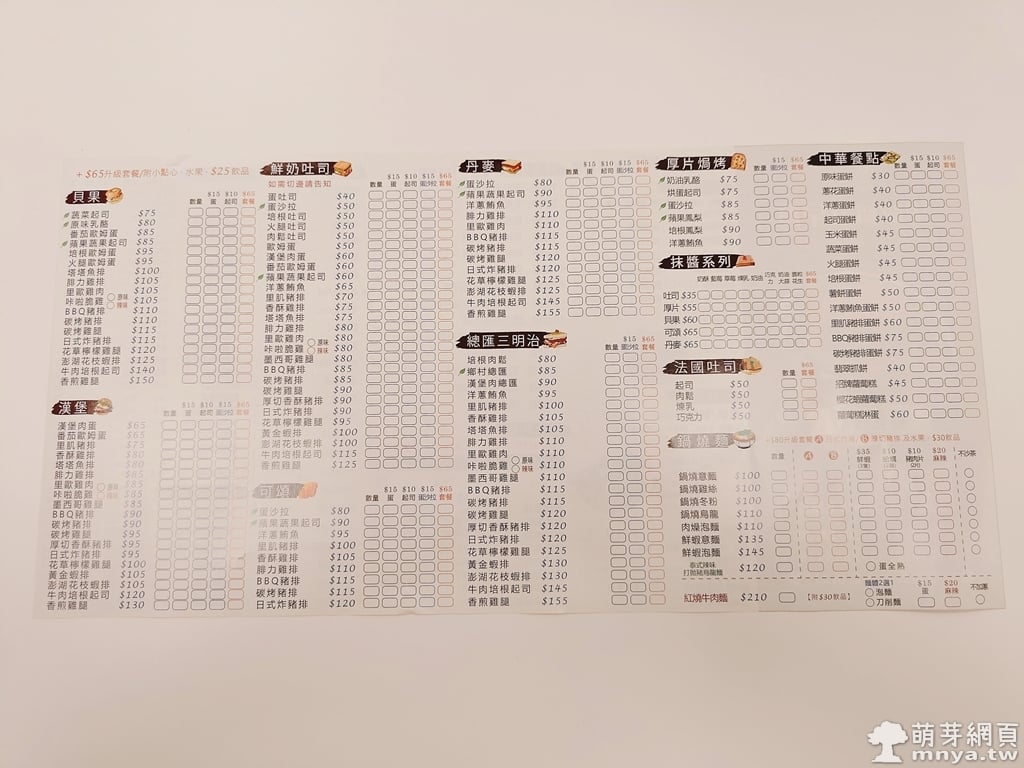 + $65升級套餐/附小點心、水果、$25飲品
貝果
$15 $10 $15 $65
數量 蛋 起司 蛋沙拉 套餐
蔬菜起司 $75
原味乳酪 $80
番茄歐姆蛋 $85
蘋果蔬果起司 $85
培根歐姆蛋 $95
火腿歐姆蛋 $95
塔塔魚排 $100
里肌豬排 $105
腓力雞排 $105
里歐雞肉 $105
咔啦脆雞 原味 辣味 $105
BBQ豬排 $110
碳烤豬排 $110
碳烤雞腿 $115
日式炸豬排 $115
花草檸檬雞腿 $120
澎湖花枝蝦排 $125
牛肉培根起司 $140
香煎雞腿 $150
漢堡
$15 $10 $15 $65
數量 蛋 起司 蛋沙拉 套餐
漢堡肉蛋 $65
番茄歐姆蛋 $65
里肌豬排 $75
香酥雞排 $80
塔塔魚排 $80
腓力雞排 $80
里歐雞肉 $85
咔啦脆雞 原味 辣味 $85
墨西哥雞排 $85
BBQ豬排 $90
碳烤豬排 $90
碳烤雞腿 $95
厚切香酥豬排 $95
日式炸豬排 $95
花草檸檬雞腿 $100
黃金蝦排 $105
澎湖花枝蝦排 $105
牛肉培根起司 $120
香煎雞腿 $130
鮮奶吐司
如需切邊請告知
$15 $10 $15 $65
數量 蛋 起司 蛋沙拉 套餐
蛋吐司 $40
蛋沙拉 $50
培根吐司 $50
火腿吐司 $50
肉鬆吐司 $50
歐姆蛋 $50
漢堡肉蛋 $60
番茄歐姆蛋 $60
蘋果蔬果起司 $60
洋蔥鮪魚 $65
里肌豬排 $70
香酥雞排 $75
塔塔魚排 $75
腓力雞排 $80
里歐雞肉 $80
咔啦脆雞 原味 辣味 $80
墨西哥雞排 $80
BBQ豬排 $85
碳烤豬排 $85
碳烤雞腿 $90
厚切香酥豬排 $90
日式炸豬排 $90
花草檸檬雞腿 $95
黃金蝦排 $100
澎湖花枝蝦排 $100
牛肉培根起司 $115
香煎雞腿 $125
可頌
$15 $10 $15 $65
數量 蛋 起司 蛋沙拉 套餐
蛋沙拉 $80
蘋果蔬果起司 $90
洋蔥鮪魚 $95
里肌豬排 $100
香酥雞排 $105
腓力雞排 $110
BBQ豬排 $115
碳烤豬排 $115
碳烤雞腿 $120
日式炸豬排 $120
丹麥
$15 $10 $15 $65
數量 蛋 起司 蛋沙拉 套餐
蛋沙拉 $80
蘋果蔬果起司 $90
洋蔥鮪魚 $95
腓力雞排 $110
里歐雞肉 $110
BBQ豬排 $115
碳烤豬排 $115
碳烤雞腿 $120
日式炸豬排 $120
花草檸檬雞腿 $125
澎湖花枝蝦排 $125
牛肉培根起司 $145
香煎雞腿 $155
總匯三明治
$15 $65
數量 蛋 起司 蛋沙拉 套餐
培根肉鬆 $80
鄉村總匯 $85
漢堡肉總匯 $90
洋蔥鮪魚 $95
里肌豬排 $100
香酥雞排 $105
塔塔魚排 $105
腓力雞排 $110
里歐雞肉 $110
咔啦脆雞 原味 辣味 $110
墨西哥雞排 $110
BBQ豬排 $115
碳烤豬排 $115
碳烤雞腿 $120
厚切香酥豬排 $120
日式炸豬排 $120
花草檸檬雞腿 $125
黃金蝦排 $130
澎湖花枝蝦排 $130
牛肉培根起司 $145
香煎雞腿 $155
厚片焗烤
$15 $65
數量 蛋沙拉 套餐
奶油乳酪 $75
烘蛋起司 $75
蛋沙拉 $85
蘋果鳳梨 $85
培根鳳梨 $90
洋蔥鮪魚 $90
抹醬系列
奶酥 藍莓 草莓 煉乳 奶油 巧克力 奶油大蒜 顆粒花生 $65套餐
吐司 $35
厚片 $55
貝果 $60
可頌 $65
丹麥 $65
法國吐司
$65
數量 套餐
起司 $50
肉鬆 $50
煉乳 $50
巧克力 $50
鍋燒麵
+$80升級套餐 A B 厚切豬排 及水果、$30飲品
數量 A B $35 鮮蝦 $10 蛤蠣 $10 豬肉片 $20 麻辣 不沙茶
鍋燒意麵 $100
鍋燒雞絲 $100
鍋燒冬粉 $100
鍋燒烏龍 $110
肉燥泡麵 $110
鮮蝦意麵 $135
鮮蝦泡麵 $145
泰式辣味打拋豬烏龍麵 $120
蛋全熟
紅燒牛肉麵 $210 【附$30飲品】
麵體2選1 泡麵 刀削麵 $15 蛋 $20 麻辣 不加蔥
中華餐點
$15 $10 $65
數量 蛋 起司 套餐
原味蛋餅 $30
蔥花蛋餅 $40
洋蔥蛋餅 $40
起司蛋餅 $40
玉米蛋餅 $45
蔬菜蛋餅 $45
火腿蛋餅 $45
培根蛋餅 $45
薯餅蛋餅 $50
洋蔥鮪魚蛋餅 $50
里肌豬排蛋餅 $60
BBQ豬排蛋餅 $75
碳烤豬排蛋餅 $75
翡翠抓餅 $40
招牌蘿蔔糕 $45
櫻花蝦蘿蔔糕 $50
蘿蔔糕淋蛋 $60
萌芽網頁
mnya.tw